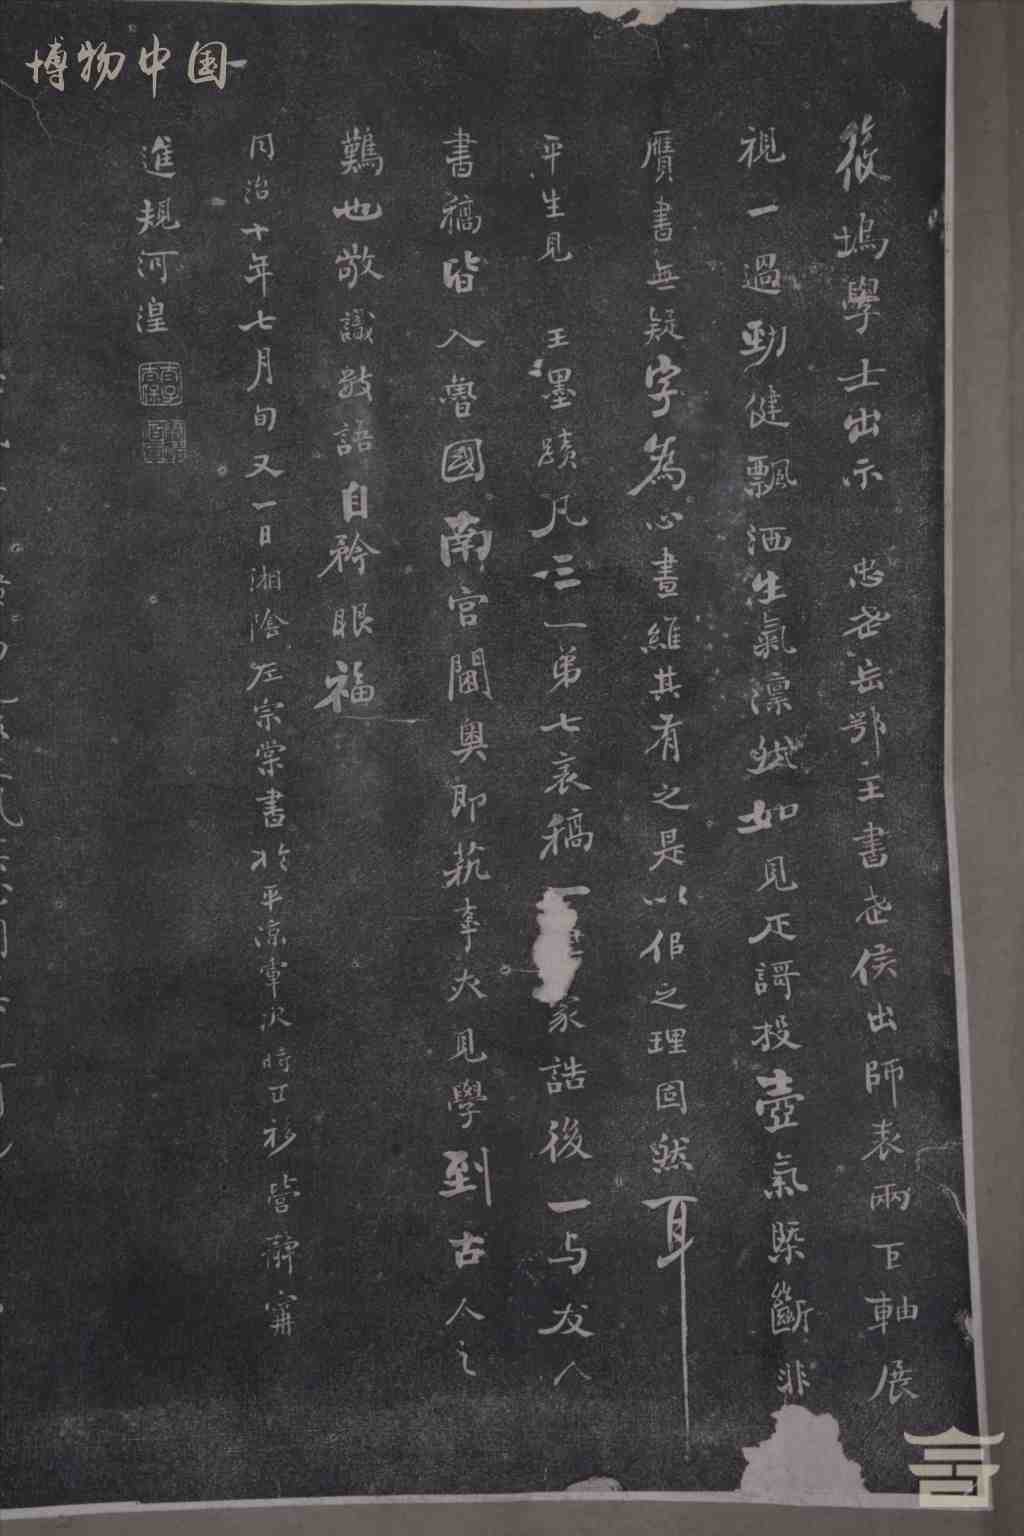 博物中国
筱塢學士出示 忠武岳鄂王書武侯出師表兩巨軸展
視一過勁健飄洒生氣凜然如見雅謌投壺氣槩斷非
贗書無疑字為心畫維其有之是以佀之理固然耳
平生見 王墨蹟凡三一弟七表稿一 家誥後一与友人
書稿皆入魯國南宮閫奧即萟事亦見學到古人之
難也敬識數語自矜眼福
同治十年七月旬又一日湘陰左宗棠書於平涼軍次時正移營靜寧
進規河湟